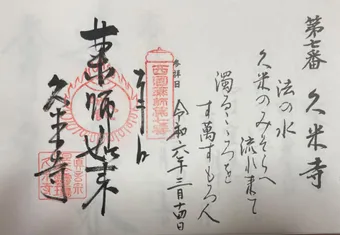 第七番 久米寺
法の水
久米のみそらへ
流れ来て
濁るこころを
すますもろ人
参拝日
令和六年三月十四日
西国薬師第七番
奉拝
薬師如来
久米寺